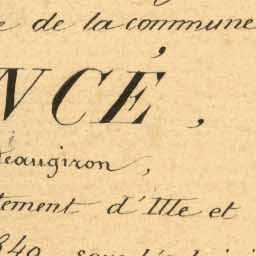 e de la commune
NCÉ,
eaugiron,
tement d'Ille et
840